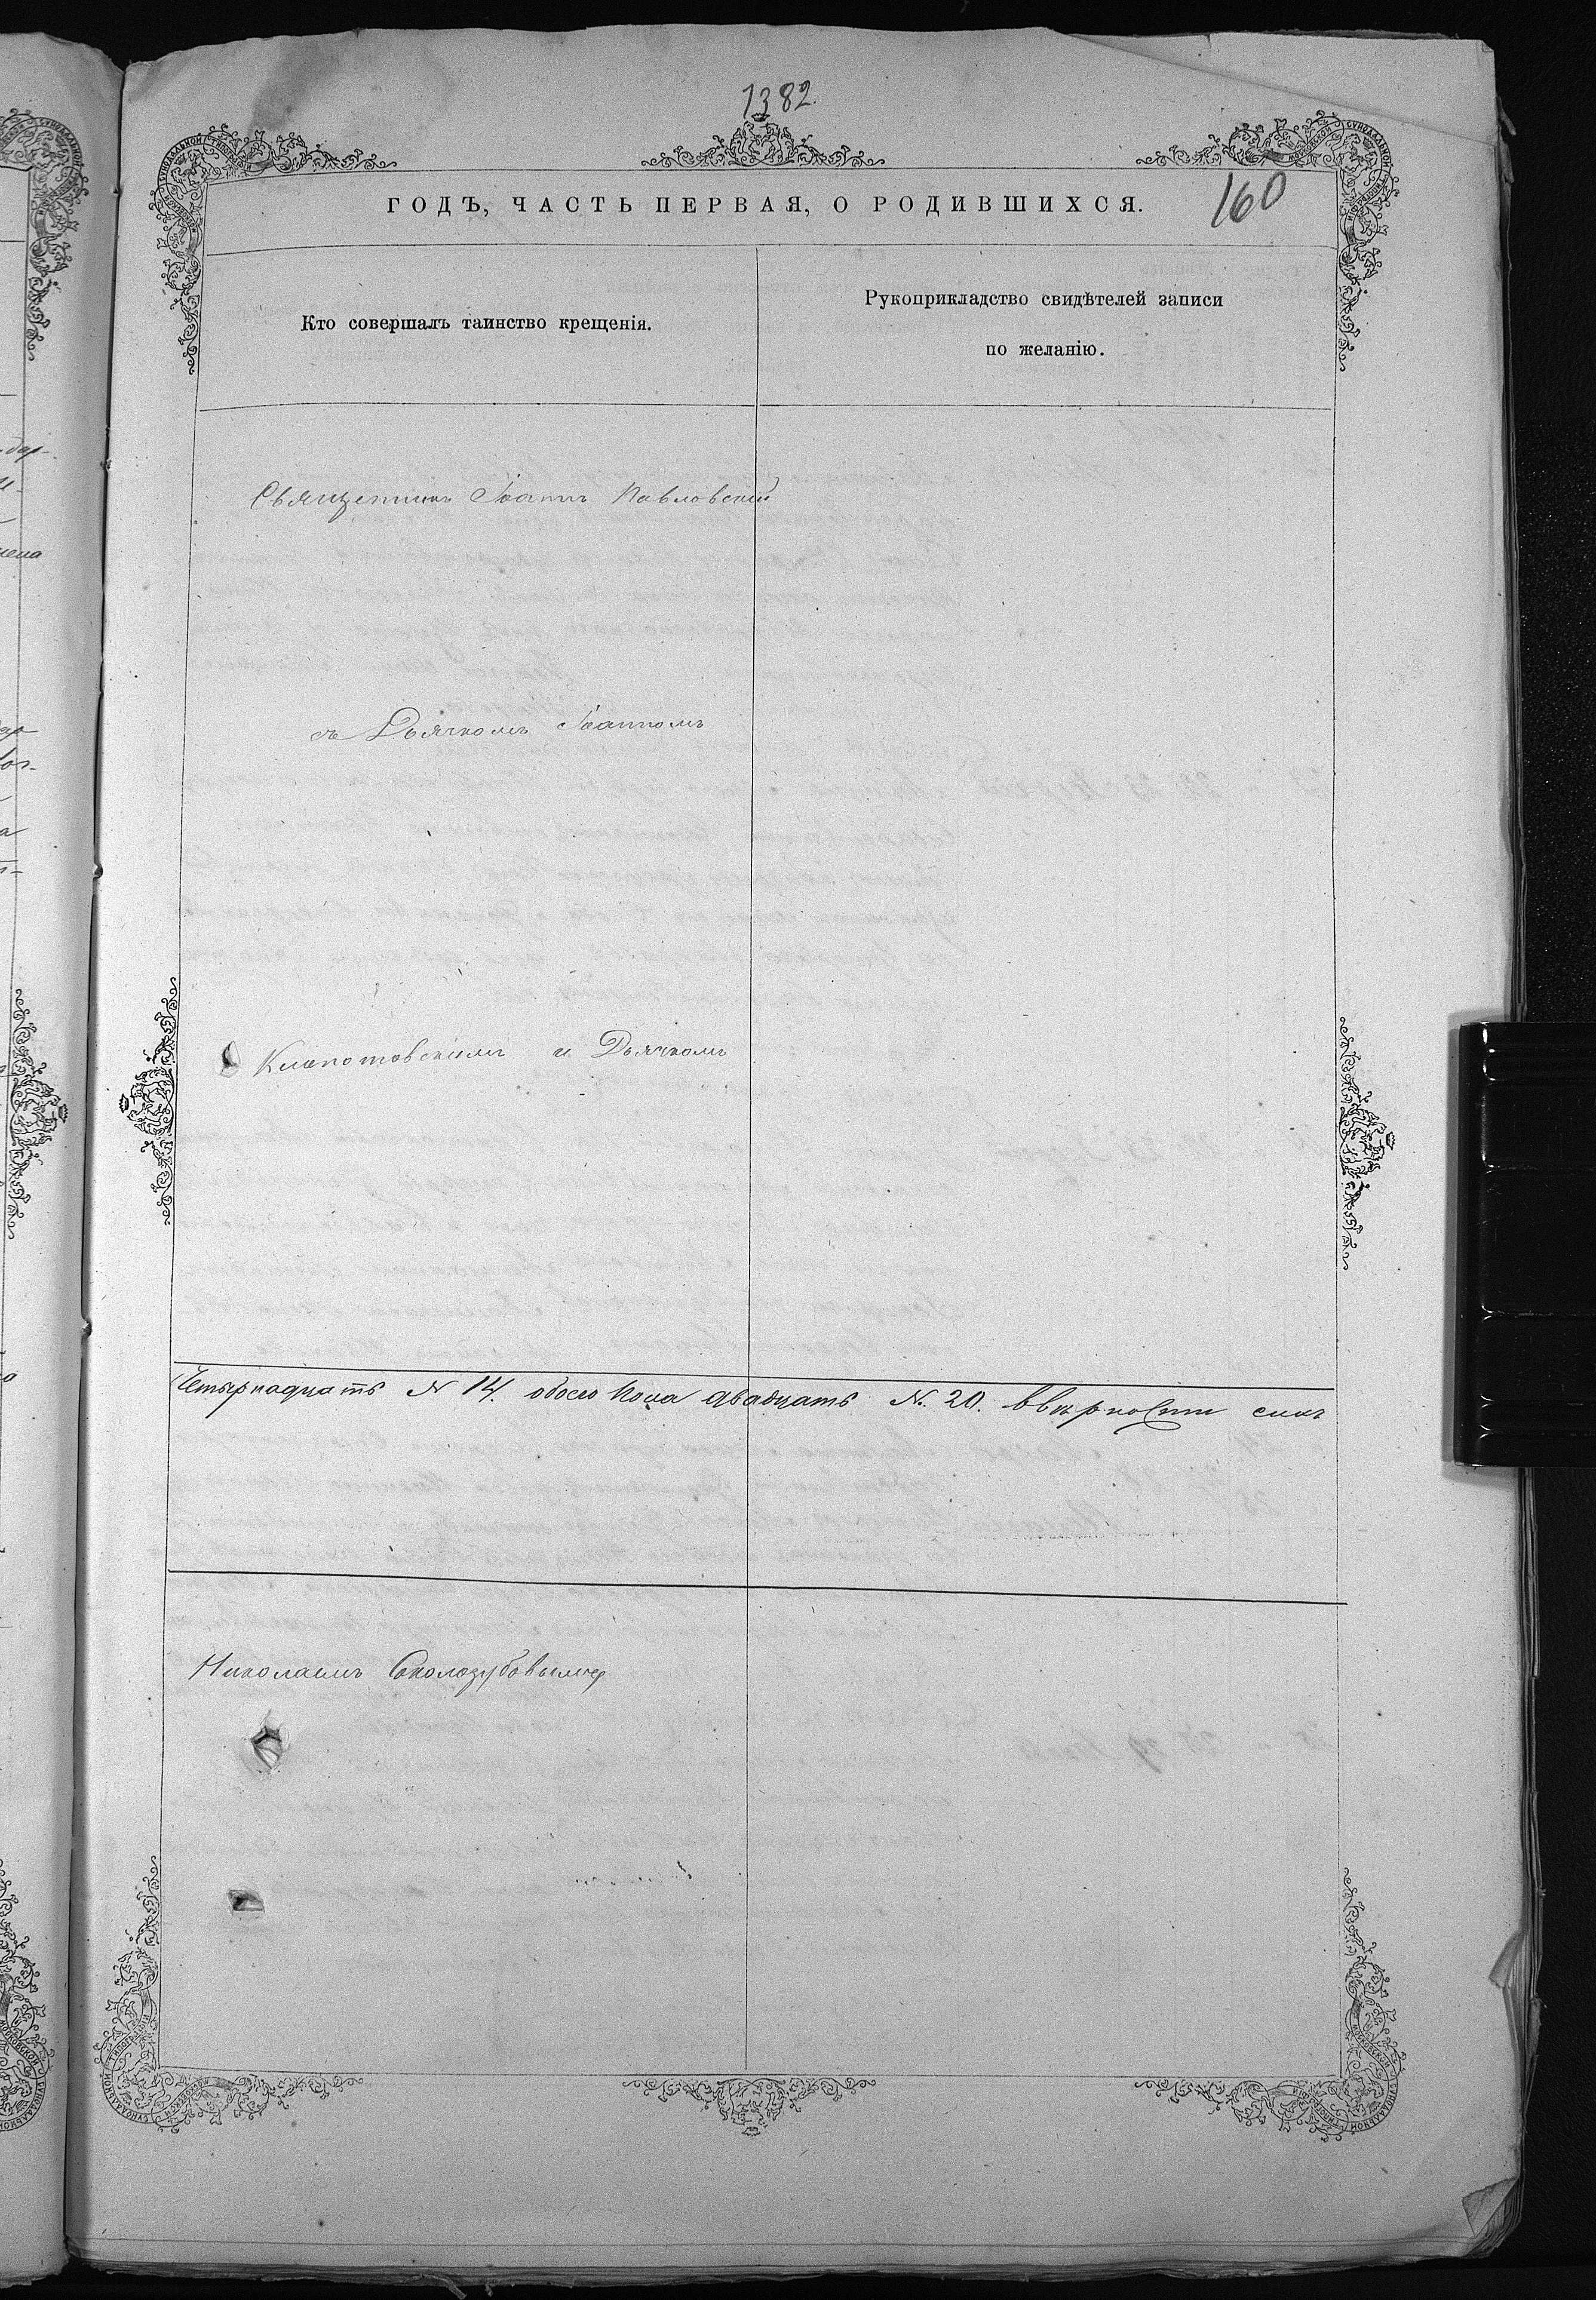 1382.
ГОДЪ, ЧАСТЬ ПЕРВАЯ, О РОДИВШИХСЯ.
160
Кто совершалъ таинство крещенія.
Рукоприкладство свидѣтелей записи
по желанію.
Священникъ Іоаннъ Павловскій
съ Дьячкомъ Іоанномъ
Клопотовскимъ и Дьячкомъ
Четырнадцать № 14. обоего пола двадцать №. 20. Ввѣрности сихъ
Николаемъ Сколозубовымъ